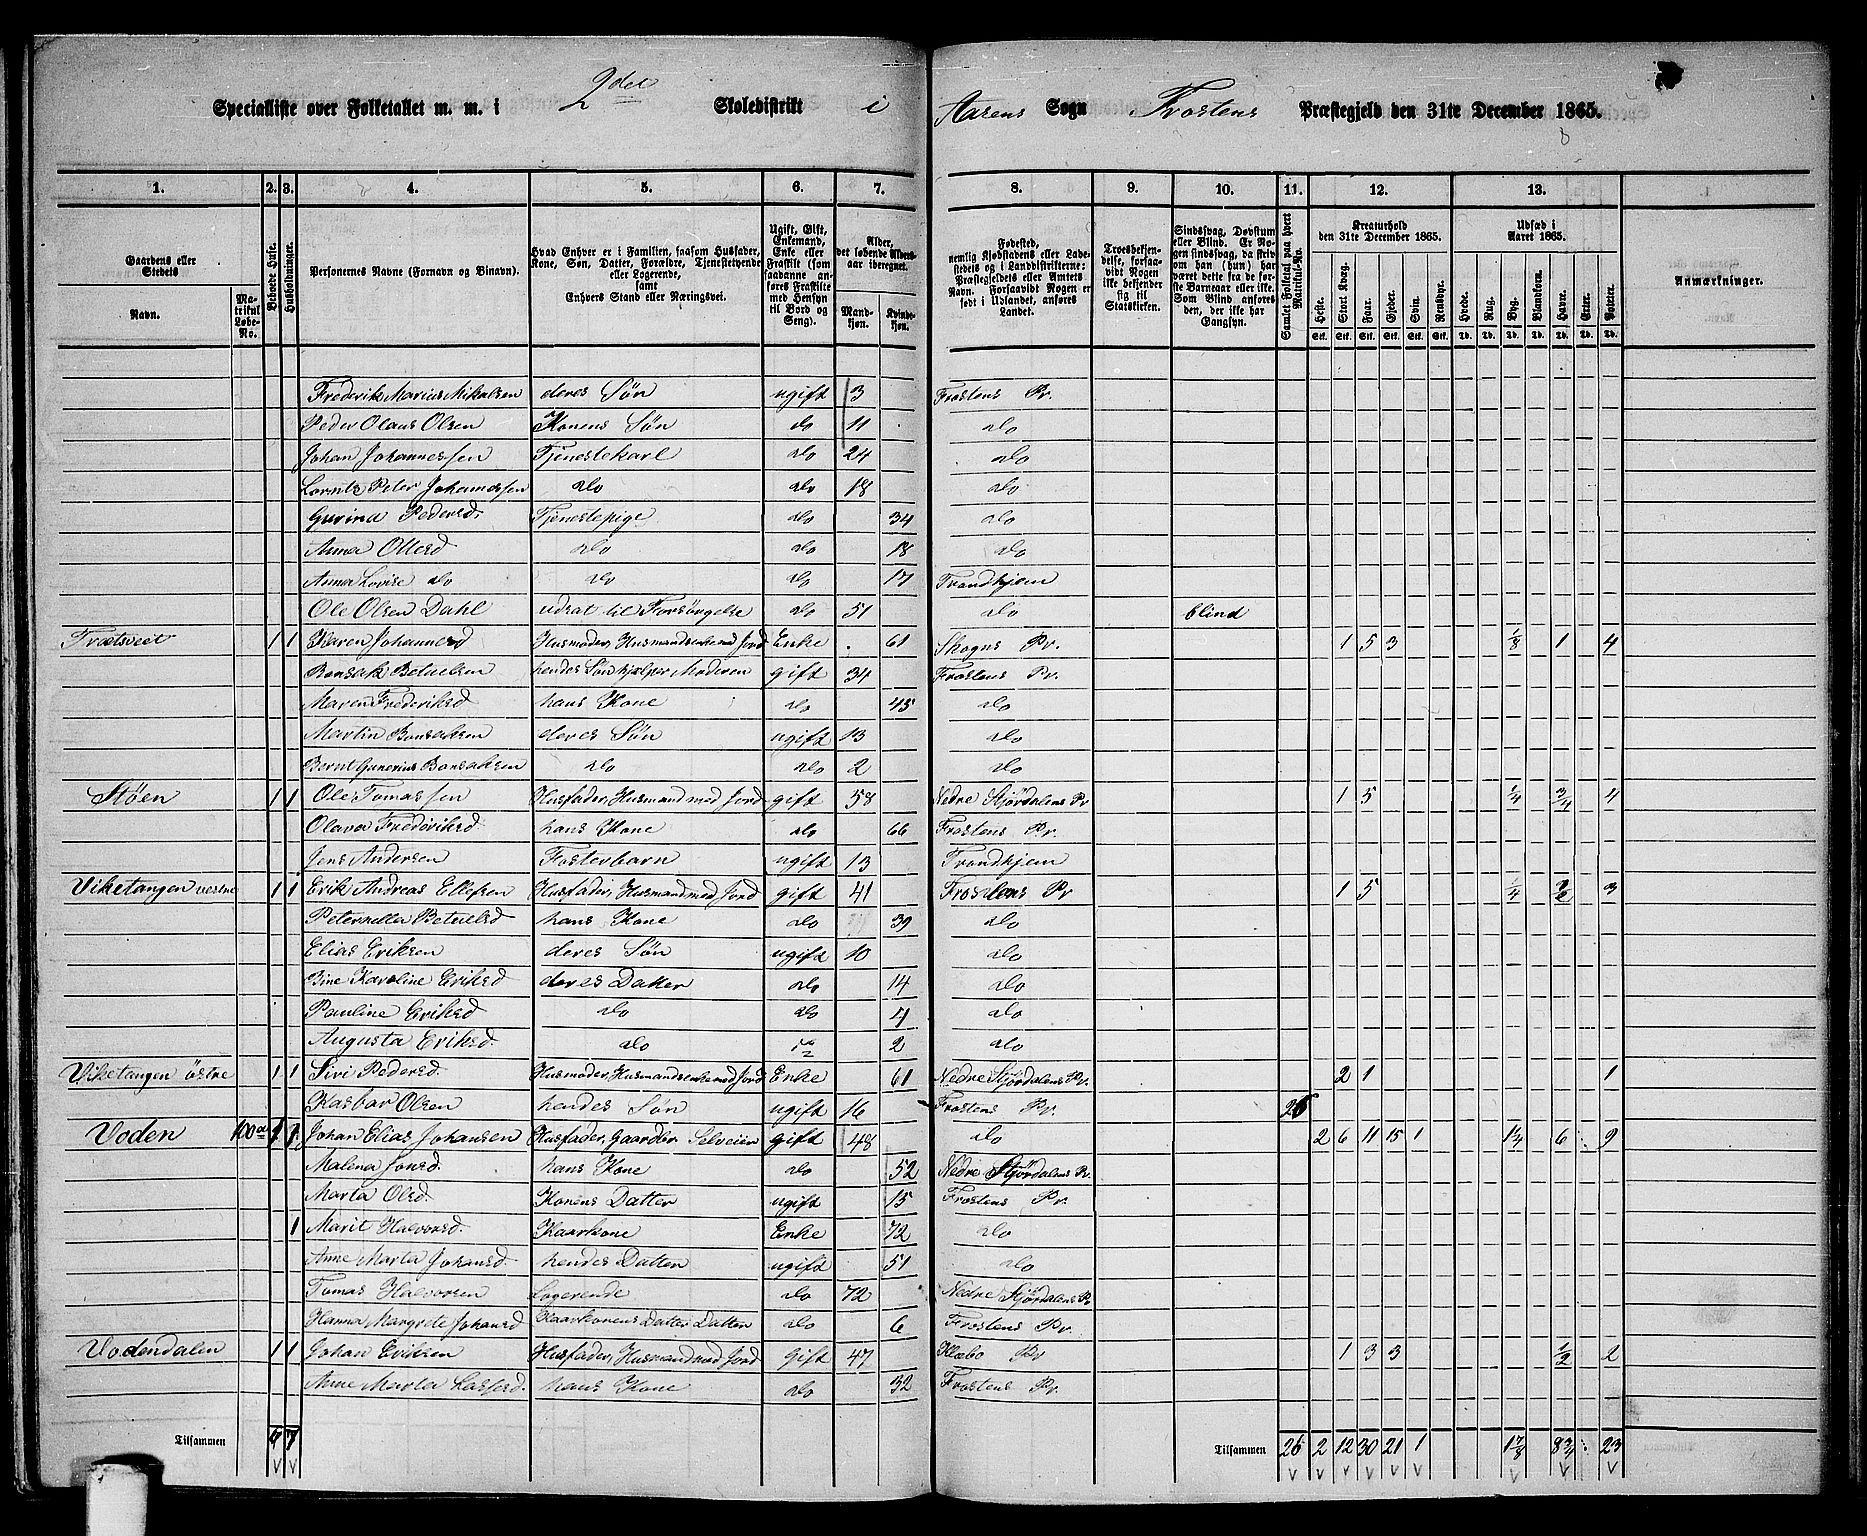 Specialliste over Folketallet m. m. i 2det Skoledistrikt i Aasens Sogn Frostens Præstegjeld den 31te December 1865.
1. 2. 3. 4. 5. 6. 7. 8. 9. 10. 11. 12. 13.
Gaardens eller Stedets
Navn.
Matrikul Løbe-No.
Beboede Huse.
Husholdninger.
Personernes Navne (Fornavn og Binavn).
Hvad Enhver er i Familien, saasom Husfader, Kone, Søn, Datter, Forældre, Tjenestetyende eller Logerende, samt Enhvers Stand eller Næringsvei.
Ugift, Gift, Enkemand, Enke eller Fraskilt (som saadanne anføres Fraskilte med Hensyn til Bord og Seng).
Alder, det løbende Aldersaar iberegnet.
Mandkjøn. Kvindekjøn.
Fødested, nemlig Kjøbstadens eller Ladestedets og i Landdistrikterne: Præstegjeldets eller Amtets Navn. Forsaavidt Nogen er født i Udlandet, anføres Landet.
Troesbekjendelse, forsaavidt Nogen ikke bekjender sig til Statskirken.
Sindssvag, Døvstum eller Blind. Er Nogen sindssvag, da skrives om han (hun) har været dette fra de første Barneaar eller ikke. Som Blind anføres den, der ikke har Gangsyn.
Samlet Folketal paa hvert Matrikul-No.
Kreaturhold den 31te December 1865.
Heste. Stort Kvæg. Faar. Gjeder. Svin. Rensdyr.
Udsæd i Aaret 1865.
Hvede. Rug. Byg. Blandkorn. Havre. Erter. Poteter.
Anmærkninger.
Frederik Marius Mikalsen deres Søn ugift 3 Frostens Pr.
Peder Olaus Olsen Konens Søn do 11 do
Johan Johannessen Tjenestekarl do 24 do
Lornts Peter Johannessen do do 18 do
Gurina Pedersd. Tjenestepige do 34 do
Anna Ottersd do do 18 do
Anna Lovise do do do 17 Trondhjem
Ole Olsen Dahl udsat til Forsørgelse do 51 do blind
Træstveet 1 1 Karen Johannesd Husmoder, Husmandsenke med Jord Enke 61 Skogns Pr. 1 5 3 1/8 1 4
Bonsak Betuelsen hendes Søn hjelper Moderen gift 34 Frostens Pr.
Maren Frederiksd hans Kone do 45 do
Martin Bonsaksen deres Søn ugift 13 do
Bernt Gunerius Bonsaksen do do 2 do
Støen 1 1 Ole Tomassen Husfader, Husmand med Jord gift 58 Nedre Stjørdalens Pr 1 5 1/4 3/4 4
Olava Frederiksd. hans Kone do 66 Frostens Pr.
Jens Andersen Fosterbarn ugift 13 Trondhjem
Viketangen vestre 1 1 Erik Andreas Ellefsen Husfader, Husmand med Jord gift 41 Frostens Pr 1 5 1/4 1/2 3
Peternella Betuelsd hans Kone do 39 do
Elias Eriksen deres Søn ugift 10 do
Bine Karoline Eriksd deres Datter do 14 do
Pauline Eriksd do do 4 do
Augusta Eriksd. do do 2 do
Viketangen østre 1 1 Siri Pedersd. Husmoder, Husmandsenke med Jord Enke 61 Nedre Stjørdalens Pr. 2 1 1
Kasbar Olsen hendes Søn ugift 16 Frostens Pr. 26
Voden 100a 1 1 Johan Elias Johansen Husfader, Gaardbr. Selveier gift 48 do 2 6 11 15 1 1 1/4 6 9
Malena Jonsd. hans Kone do 52 Nedre Stjørdalens Pr.
Marta Olsd. Konens Datter ugift 15 Frostens Pr.
1 Marit Halvorsd. Kaarkone Enke 72 do
Anne Marta Johansd. hendes Datter ugift 51 do
Tomas Halvorsen Logerende do 72 Nedre Stjørdalens Pr
Hanna Margrete Johansd Kaarkonens Datter Datter do 6 Frostens Pr.
Vodendalen 1 1 Johan Eriksen Husfader, Husmand med Jord gift 47 Klæbo Pr 1 3 3 1/2 2
Anne Marta Lassesd. hans Kone do 32 Frostens Pr.
Tilsammen 7 Tilsammen 26 2 12 30 21 1 1 7/8 8 3/4 23